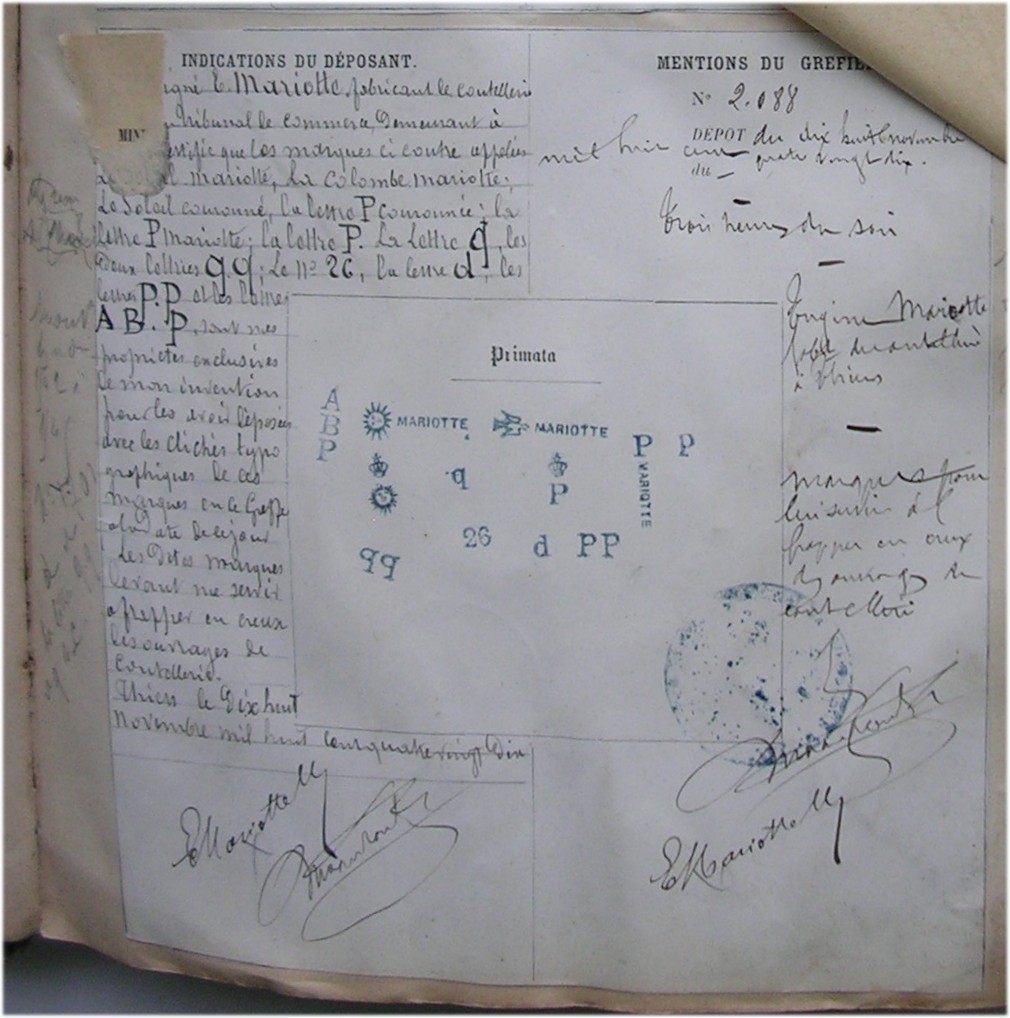 INDICATIONS DU DÉPOSANT.
E. Mariotte, fabricant de coutellerie
Tribunal de commerce, Demeurant à
que les marques ci contre appelées
Le Soleil mariotte, la Colombe mariotte;
Le Soleil couronné, la lettre P couronnée; la
Lettre P mariotte; la lettre P. La Lettre q, les
deux lettres q.q; Le No 26, la lettre d, les
lettres P.P et les lettres
A B. P, sont mes
propriétés exclusives
de mon invention
pour les avoir déposées
avec les clichés typo
graphiques de ces
marques en ce Greffe
à la date de ce jour
Les Dites marques
devant me servir
a frapper en creux
les ouvrages de
Coutellerie.
Thiers le Dix huit
Novembre mil huit cent quatre vingt Dix
E Mariotte
MENTIONS DU GREFFIE
No 2.088
DÉPOT du dix huit novembre
mil huit cent quatre vingt dix.
du
Trois heures du soir
Eugène Mariotte
fabt de coutellerie
à Thiers
marques pour
lui servir à
frapper en creux
ouvrages de
coutellerie
E Mariotte
Primata
A
B
P
MARIOTTE
MARIOTTE
P
MARIOTTE
P
q
P
qq
26
d
PP